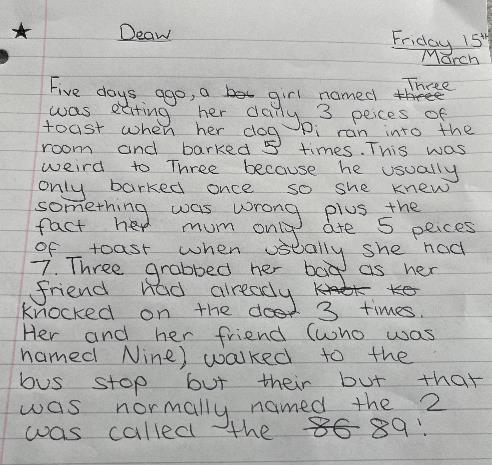 Deaw
Friday 15th
March
Three
Five days ago, a boy girl named three
was eating her daily 3 peices of
toast when her dog Pi ran into the
room and barked 5 times. This was
weird to Three because he usually
only barked once so she knew
something was wrong plus the
fact her mum only ate 5 peices
of toast when usually she had
7. Three grabbed her bag as her
friend had already knok ko
knocked on the door 3 times.
Her and her friend (who was
named Nine) walked to the
bus stop but their but that
was normally named the 2
was called the 86 89!